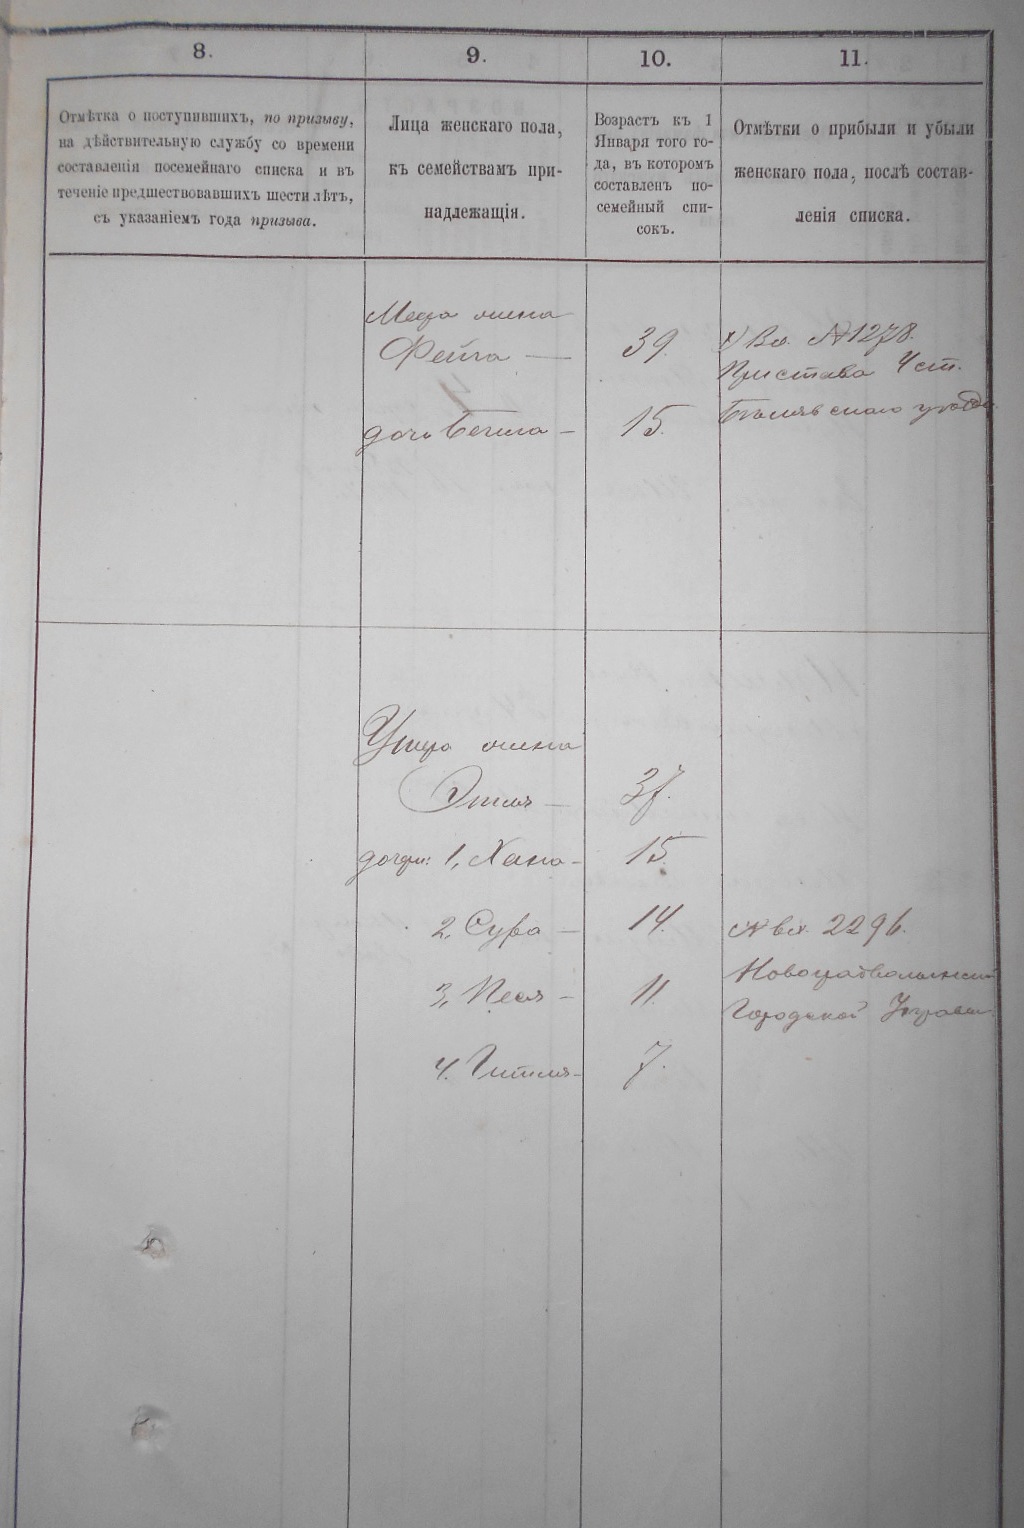 8.
9.
10.
11.
Отмѣтка о поступившихъ, по призыву,
на дѣйствительную службу со времени
составленія посемейнаго списка и въ
теченіе предшествовавшихъ шести лѣтъ,
съ указаніемъ года призыва.
Лица женскаго пола,
къ семействамъ при-
надлежащія.
Возрастъ къ 1
Января того го-
да, въ которомъ
составленъ по-
семейный спи-
сокъ.
Отмѣтки о прибыли и убыли
женскаго пола, послѣ состав-
ленія списка.
жена
Фейга — 39.
дочь Бейла — 15.
Вх. № 1278.
Пристава 4 ст.
уѣзда
жена
Этля — 37.
дочери: 1, Хана - 15.
2, Сура — 14.
3, Песя - 11.
4. Гитля - 7.
№ вх. 2296.
Новоградволынской
Городской Управы